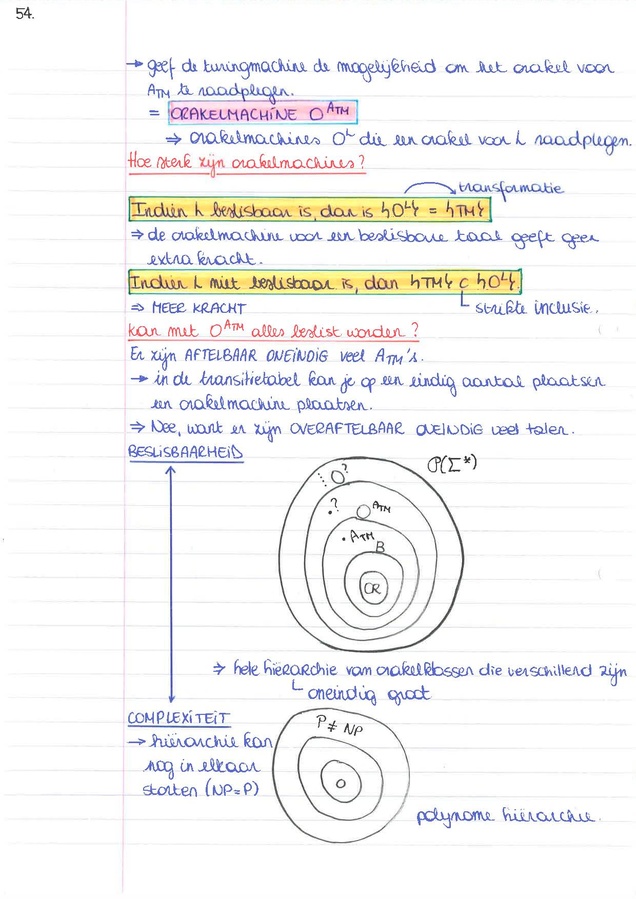 54.
→ geef de turingmachine de mogelijkheid om het orakel voor
A_TM te raadplegen.
= ORAKELMACHINE O^A_TM
⇒ orakelmachines O^L die een orakel voor L raadplegen.
Hoe sterk zijn orakelmachines?
transformatie
Indien L beslisbaar is, dan is {O^L} = {TM}
⇒ de orakelmachine voor een beslisbare taal geeft geen
extra kracht.
Indien L niet beslisbaar is, dan {TM} ⊂ {O^L}.
⇒ MEER KRACHT
strikte inclusie.
kan met O^A_TM alles beslist worden?
Er zijn AFTELBAAR ONEINDIG veel A_TM's.
→ in de transitietabel kan je op een eindig aantal plaatsen
een orakelmachine plaatsen.
⇒ Nee, want er zijn OVERAFTELBAAR ONEINDIG veel talen.
BESLISBAARHEID
P(Σ*)
O?
.?
O^A_TM
. A_TM
B
CR
⇒ hele hiërarchie van orakelklassen die verschillend zijn
oneindig groot
COMPLEXITEIT
P ≠ NP
→ hiërarchie kan
nog in elkaar
storten (NP=P)
O
polynome hiërarchie.